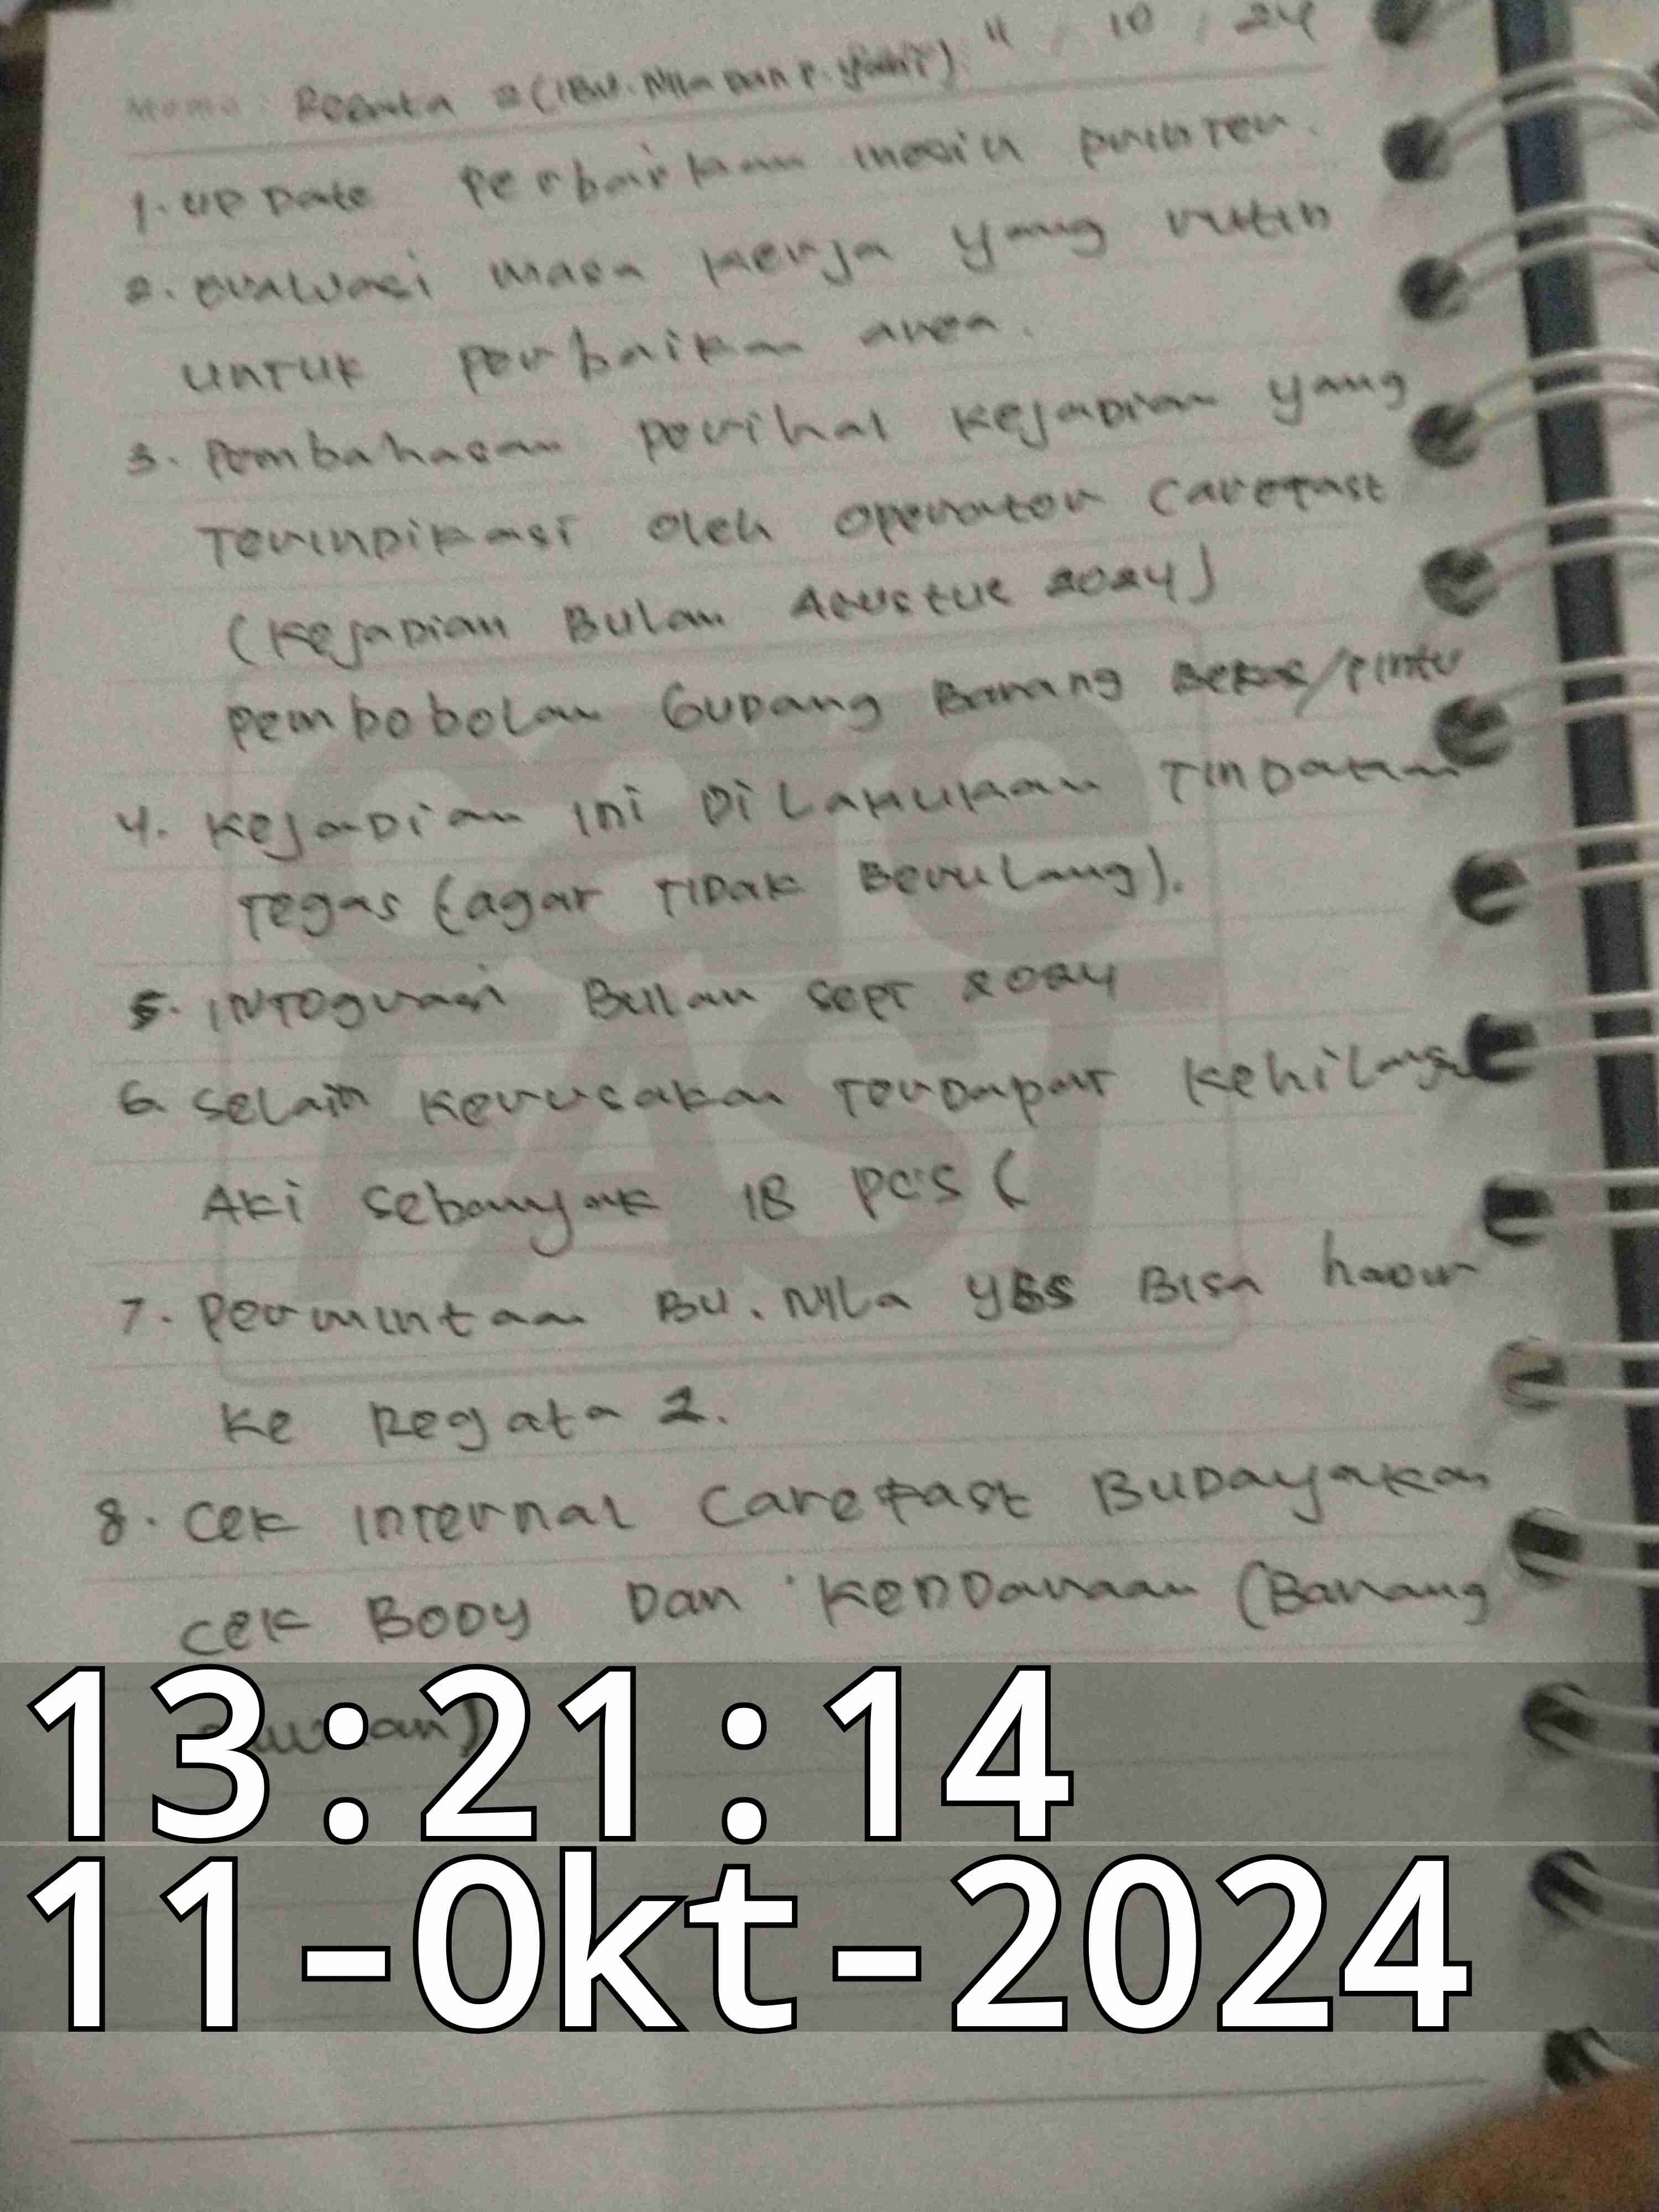 Memo: Regata 2 (IBU. Nila Dan P. 11 / 10 / 24
1. UP Date Perbaikan mesin
2. evaluasi masa kerja yang rutin
UNTUK perbaikan area.
3. Pembahasan perihal kejadian yang
Terindikasi oleh operator Carefast
(Kejadian Bulan Agustus 2024)
Pembobolan Gudang Barang Bekas/pintu
4. Kejadian ini Dilakukaan Tindakan
Tegas (agar TIDak Berulang).
5. INTograsi Bulan Sept 2024
6. Selain Kerusakan Terdapat Kehilangan
Aki Sebanyak 18 pcs (
7. Permintaan BU. Nila YBS Bisa hadir
Ke Regata 2.
8. Cek Internal Carefast Budayakan
cek Body Dan Kendaraan (Barang
care
FAST
13:21:14
11-Okt-2024